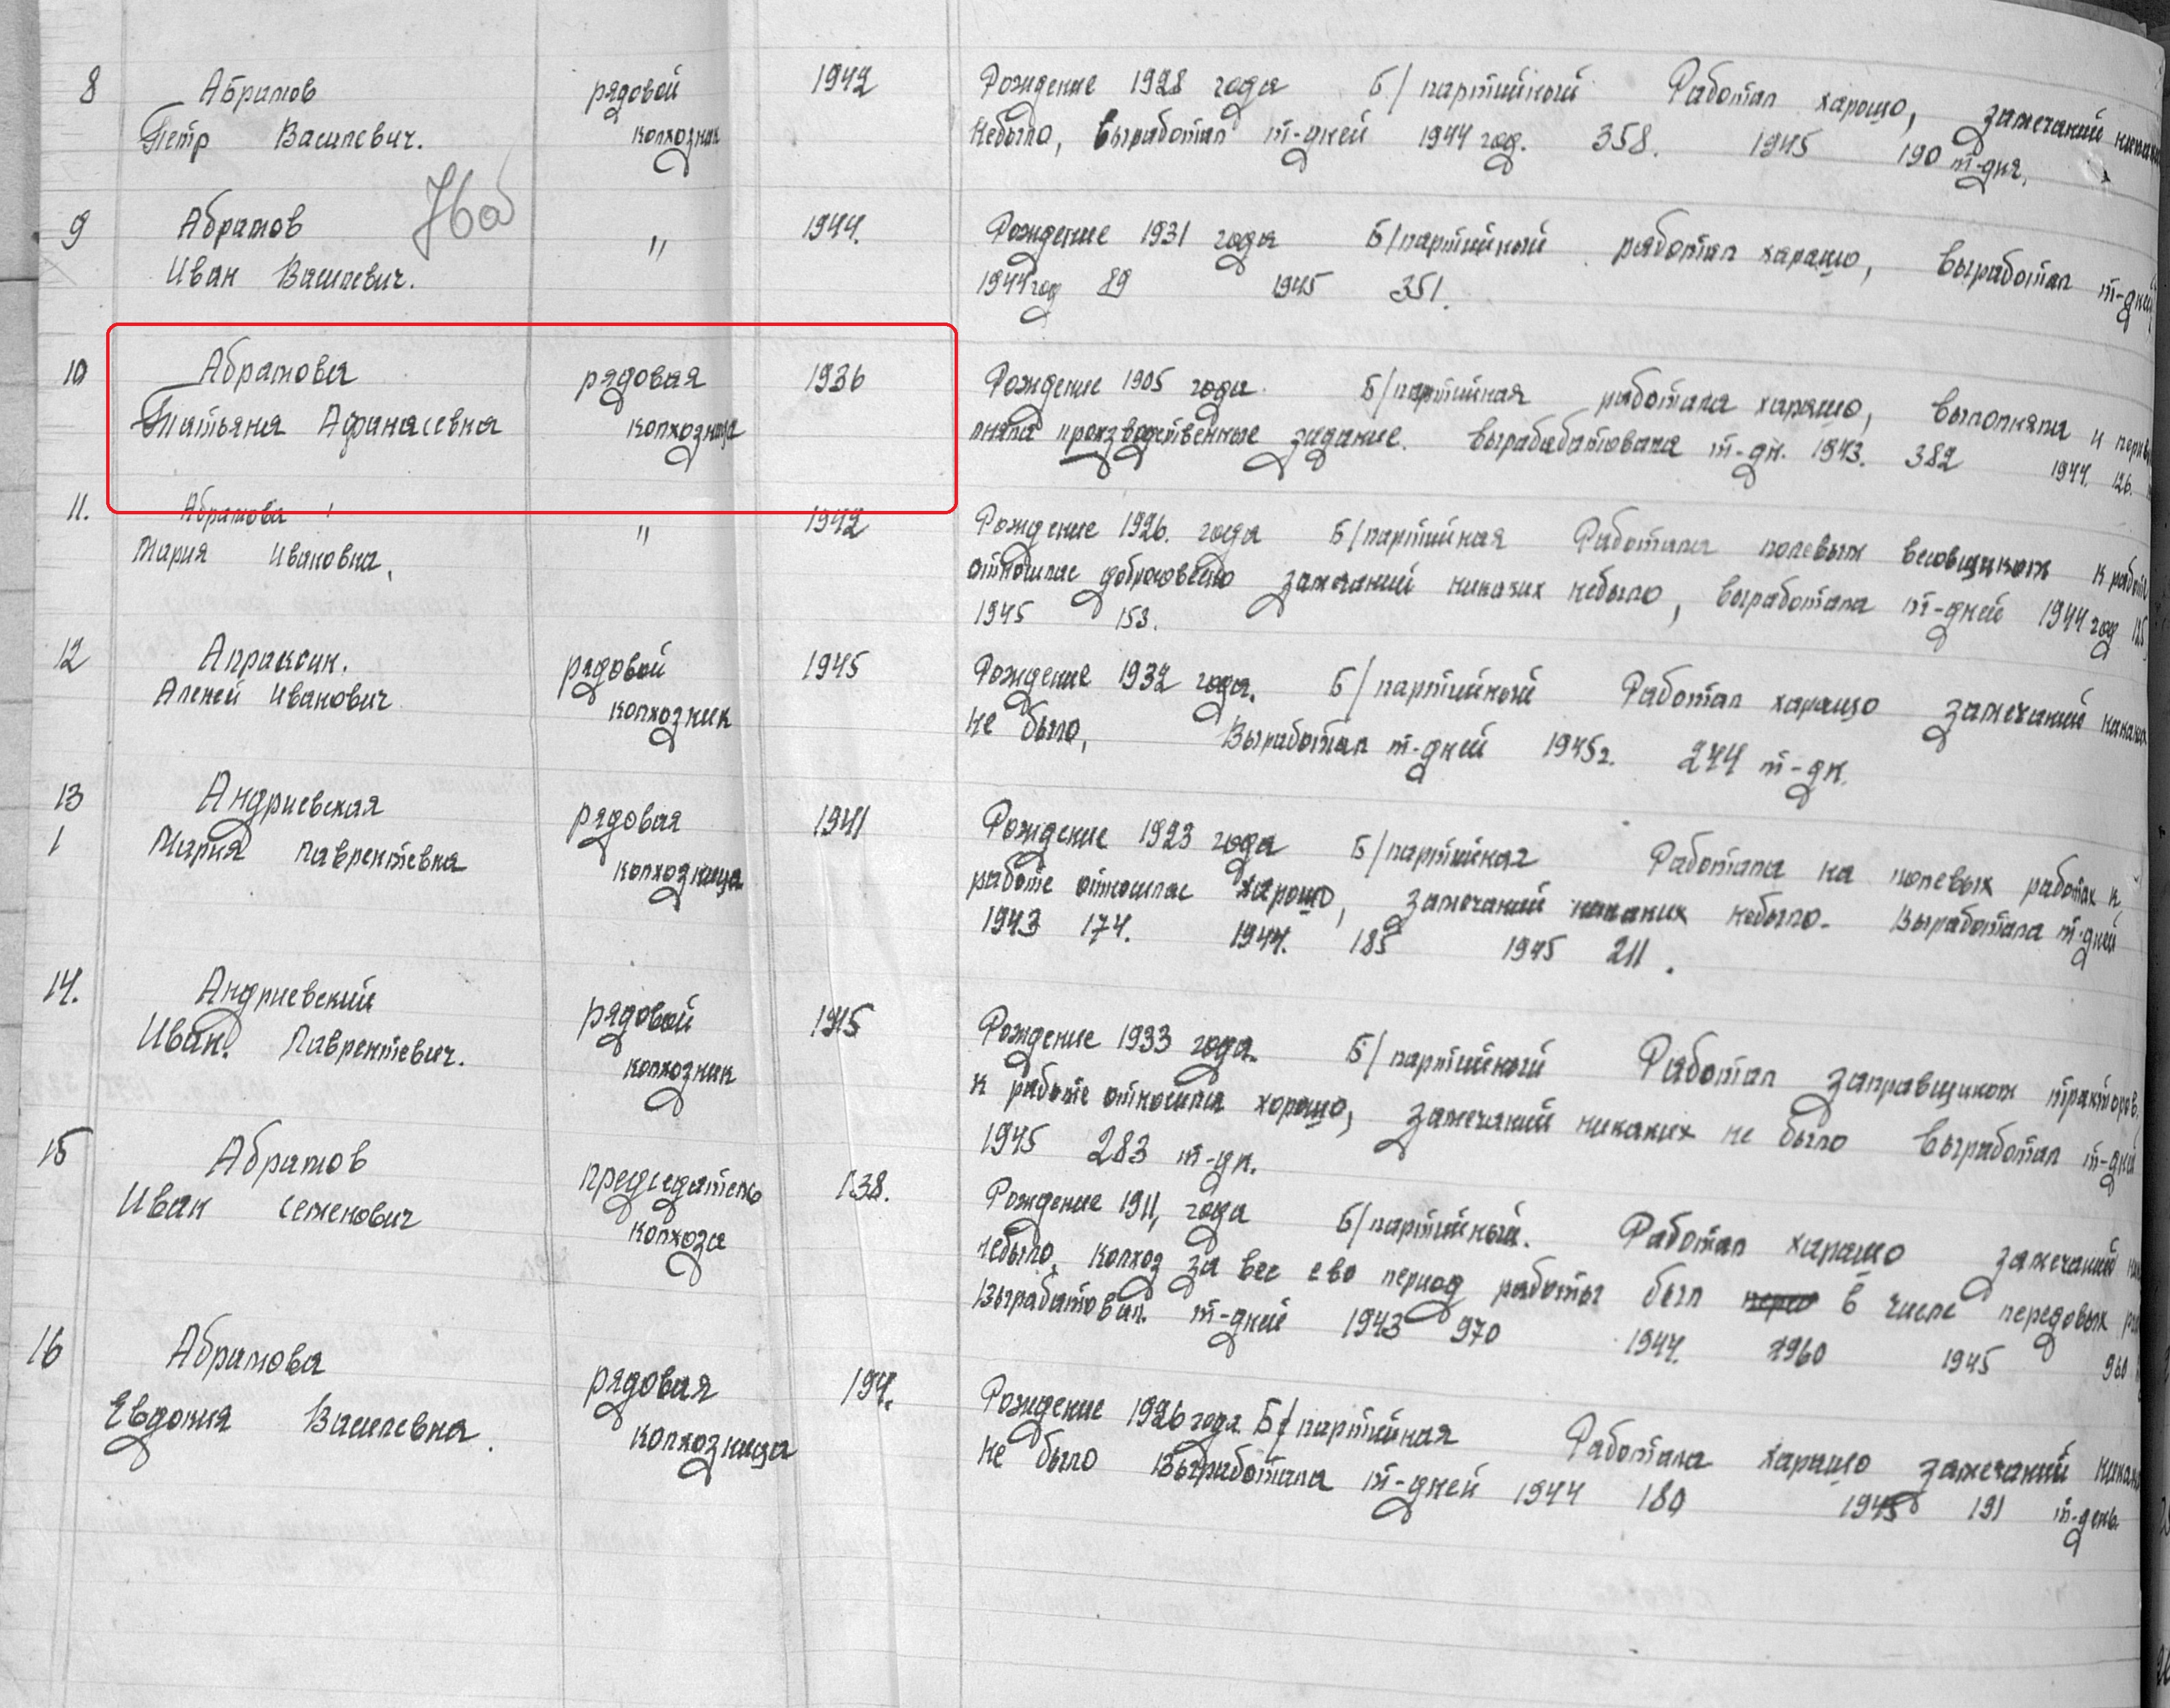 8 Абрамов рядовой 1942 Рождение 1928 года Б/партийный Работал харошо, замечаний
Петр Василевич. колхозник небыло, выработал т-дней 1944 год. 358. 1945 190 т-дня.
9 Абрамов " 1944. Рождение 1931 года Б/партийный работал харашо, выработал т-дней
Иван Василевич. 1944 год 89 1945 351.
10 Абрамова рядовая 1936 Рождение 1905 года. Б/партийная работала харашо, выполняла и
Татьяна Афанасевна колхозница производственные задание. т-дн. 1943. 382 1944. 126.
11. Абрамова " 1942 Рождение 1926. года Б/партийная Работала полевым весовщиком к работе
Мария Ивановна, замечаний никаких небыло, выработала т-дней 1944 год
1945 153.
12 Апраксин. рядовой 1945 Рождение 1932 года. Б/партийный Работал харашо замечаний
Алексей Иванович колхозник не было, Выработал т-дней 1945г. 244 т-дн.
13 Андриевская рядовая 1941 Рождение 1923 года Б/партийная Работала на полевых работах к
1 Мария Лаврентевна колхозница работе отношлас харошо, замечаний никаких небыло. Выработала т-дней
1943 174. 1944. 185 1945 211.
14. Андриевский рядовой 1945 Рождение 1933 года. Б/партийный Работал заправщиком тракторов.
Иван. Лаврентевич. колхозник к работе хорошо, замечаний никаких не было выработал т-дней
1945 283 т-дн.
15 Абрамов председатель 138. Рождение 1911, года Б/партийный. Работал харашо замечаний
Иван Семенович колхоза небыло, колхоз за вес ево период работы был в числе передовых
Вырабатовал. т-дней 1943 970 1944. 1945 960
16 Абрамова рядовая 194. Рождение 1926 года Б/партийная Работала харашо замечаний
Евдокия Василевна. колхозница не было Выработала т-дней 1944 180 1945 191 т-день